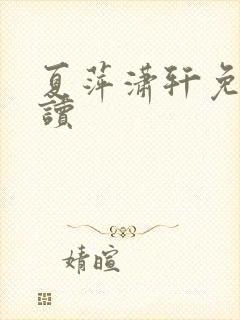 夏萍潇轩免
讀
婧暄